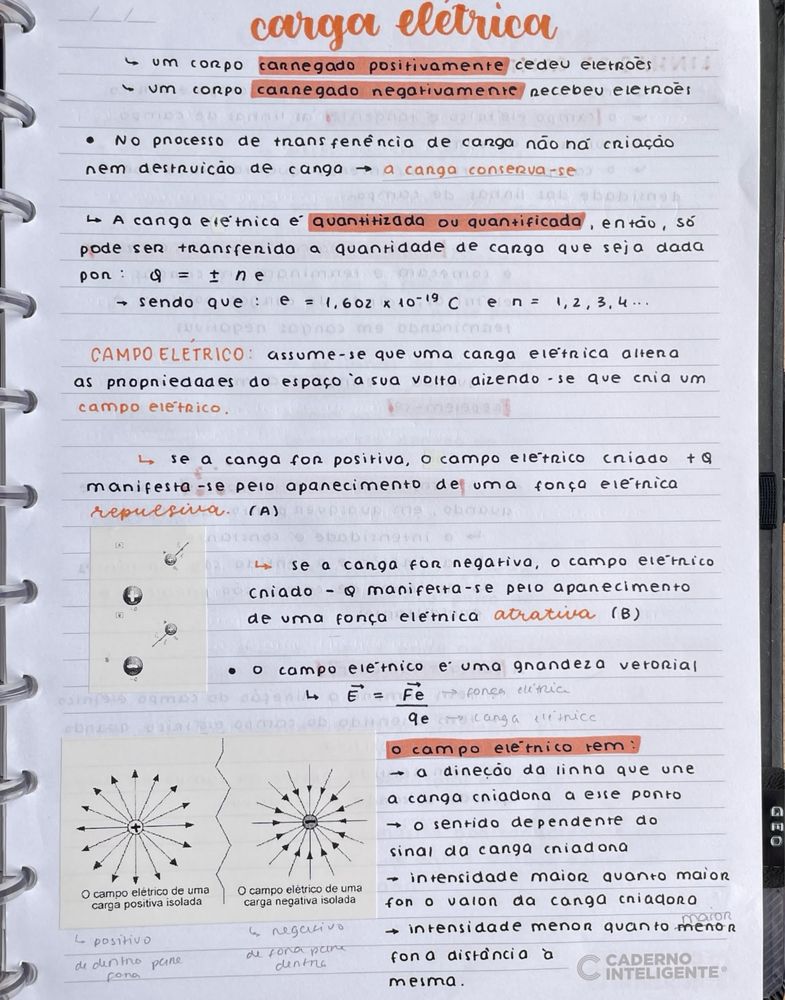 carga elétrica
↳ um corpo carregado positivamente cedeu eletroēs
↳ um corpo carregado negativamente recebeu eletroēs
• No processo de transferência de carga não há criação
nem destruição de carga → a carga conserva-se
↳ A carga elétrica é quantitizada ou quantificada, então, só
pode ser transferida a quantidade de carga que seja dada
por: Q = ± n e
→ sendo que: e = 1,602 x 10⁻¹⁹ C e n = 1, 2, 3, 4...
CAMPO ELÉTRICO: assume-se que uma carga elétrica altera
as propriedades do espaço à sua volta dizendo-se que cria um
campo elétrico.
↳ se a carga for positiva, o campo elétrico criado +Q
manifesta-se pelo aparecimento de uma força elétrica
repulsiva. (A)
↳ se a carga for negativa, o campo elétrico
criado -Q manifesta-se pelo aparecimento
de uma força elétrica atrativa (B)
• o campo elétrico é uma grandeza vetorial
↳ E⃗ = F⃗e → força elétrica
qe → carga elétrica
o campo elétrico tem:
→ a direção da linha que une
a carga criadora a esse ponto
→ o sentido dependente do
sinal da carga criadora
→ intensidade maior quanto maior
for o valor da carga criadora
→ intensidade menor quanto menor maior
for a distância à
mesma.
+
−
O campo elétrico de uma
carga positiva isolada
O campo elétrico de uma
carga negativa isolada
↳ positivo
de dentro para
fora
↳ negativo
de fora para
dentro
CADERNO
INTELIGENTE®
GEO